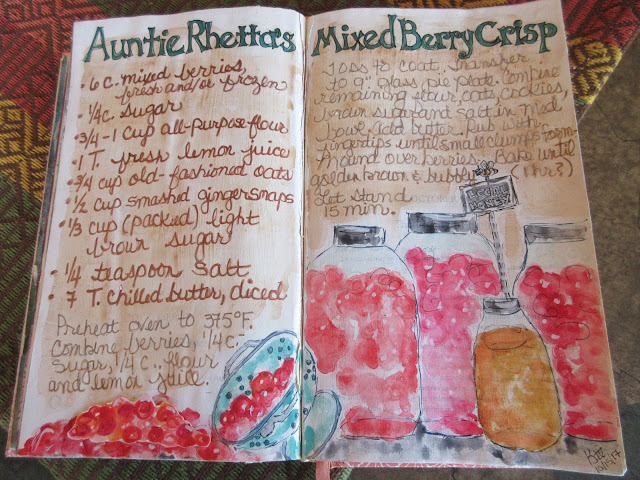 Auntie Rhetta's
• 6 c. mixed berries,
fresh and/or frozen
• 1/4 c. sugar
• 3/4 - 1 cup all-purpose flour
• 1 T. fresh lemon juice
• 3/4 cup old-fashioned oats
• 1/2 cup smashed gingersnaps
• 1/3 cup (packed) light
brown sugar
• 1/4 teaspoon salt
• 7 T. chilled butter, diced
Preheat oven to 375°F.
Combine berries, 1/4 c.
sugar, 1/4 c. flour
and lemon juice.
Mixed Berry Crisp
Toss to coat. Transfer
to 9" glass pie plate. Combine
remaining flour, oats, cookies,
brown sugar and salt in med.
bowl, add butter. Rub with
fingertips until small clumps form.
Mound over berries. Bake until
golden brown & bubbly (1 hr?)
Let stand
15 min.
HONEY